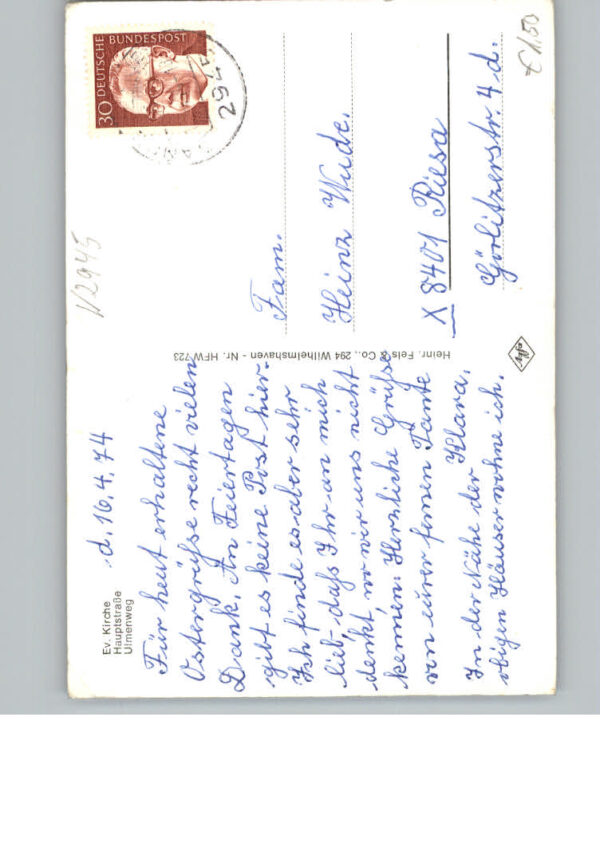 Ev. Kirche
Hauptstraße
Ulmenweg
d. 16.4.74
Für heut erhaltene
Ostergrüße recht vielen
Dank. An Feiertagen
gibt es keine Post hier.
Ich finde es aber sehr
lieb, daß Ihr an mich
denkt, wo wir uns nicht
kennen. Herzliche Grüße
von eurer fernen Tante
Klara.
In der Nähe der
obigen Häuser wohne ich.
Heinr. Fels & Co., 294 Wilhelmshaven - Nr. HFW 723
Agfa
30 DEUTSCHE BUNDESPOST
294
V2945
€ 1,50
Fam.
Heinz Wude.
X 8401 Riesa
Görlitzerstr. 4 d.